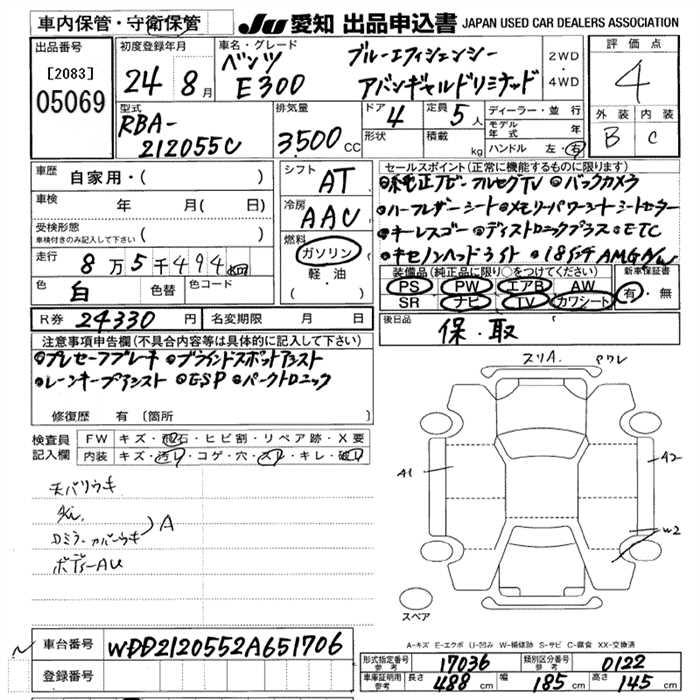 車内保管・守衛保管 JU 愛知 出品申込書 JAPAN USED CAR DEALERS ASSOCIATION
出品番号 初度登録年月 車名・グレード ブルーエフィシェンシー 2WD・4WD 評価点
[2083] 24年8月 ベンツ E300 アバンギャルドリミテッド 4
05069 外装 内装
型式 排気量 ドア 4 定員 5人 ディーラー・並行 B C
RBA-212055C 3500CC 形状 積載 kg モデル年式 年
ハンドル 左・右
車歴 自家用・( ) シフト AT セールスポイント(正常に機能するものに限ります)
車検 年 月( 日) 冷房 AAC ◎純正ナビ-フルセグTV ◎バックカメラ
受検形態 ◎ハーフレザーシート ◎メモリーパワーシートヒーター
車検付きのみ記入して下さい ( ) 燃料 ガソリン・軽油 ( ) ◎キーレスゴー ◎ディストロニックプラス ◎ETC
走行 8万5千494km ◎キセノンヘッドライト ◎18インチAMGA/W
色 白 色替 色コード 装備品(純正品に限り○をつけてください) 新車保証書
PS PW エアB AW 有・無
SR ナビ TV カワシート
R券 24330円 名変期限 月 日 後日品 保・取
注意事項申告欄(不具合内容等は具体的に記入して下さい)
◎プレセーフブレーキ ◎ブラインドスポットアシスト
◎レーンキープアシスト ◎ESP ◎パークトロニック
修復歴 有〔箇所
スリA. ワレ
検査員記入欄 FW キズ・飛石・ヒビ割・リペア跡・X要
内装 キズ・汚れ・コゲ・穴・スレ・キレ・破れ
A1 A2
モバリウキ
Ki. A
Dミラーカバーウキ W2
ボディーAU
スペア
A-キズ E-エクボ U-凹み W-補修跡 S-サビ C-腐食 XX-交換済
車台番号 WDD2120552A651706
登録番号
形式指定番号 参考 17036 類別区分番号 参考 0122
車庫証明用 参考 長さ 488cm 幅 185cm 高さ 145cm